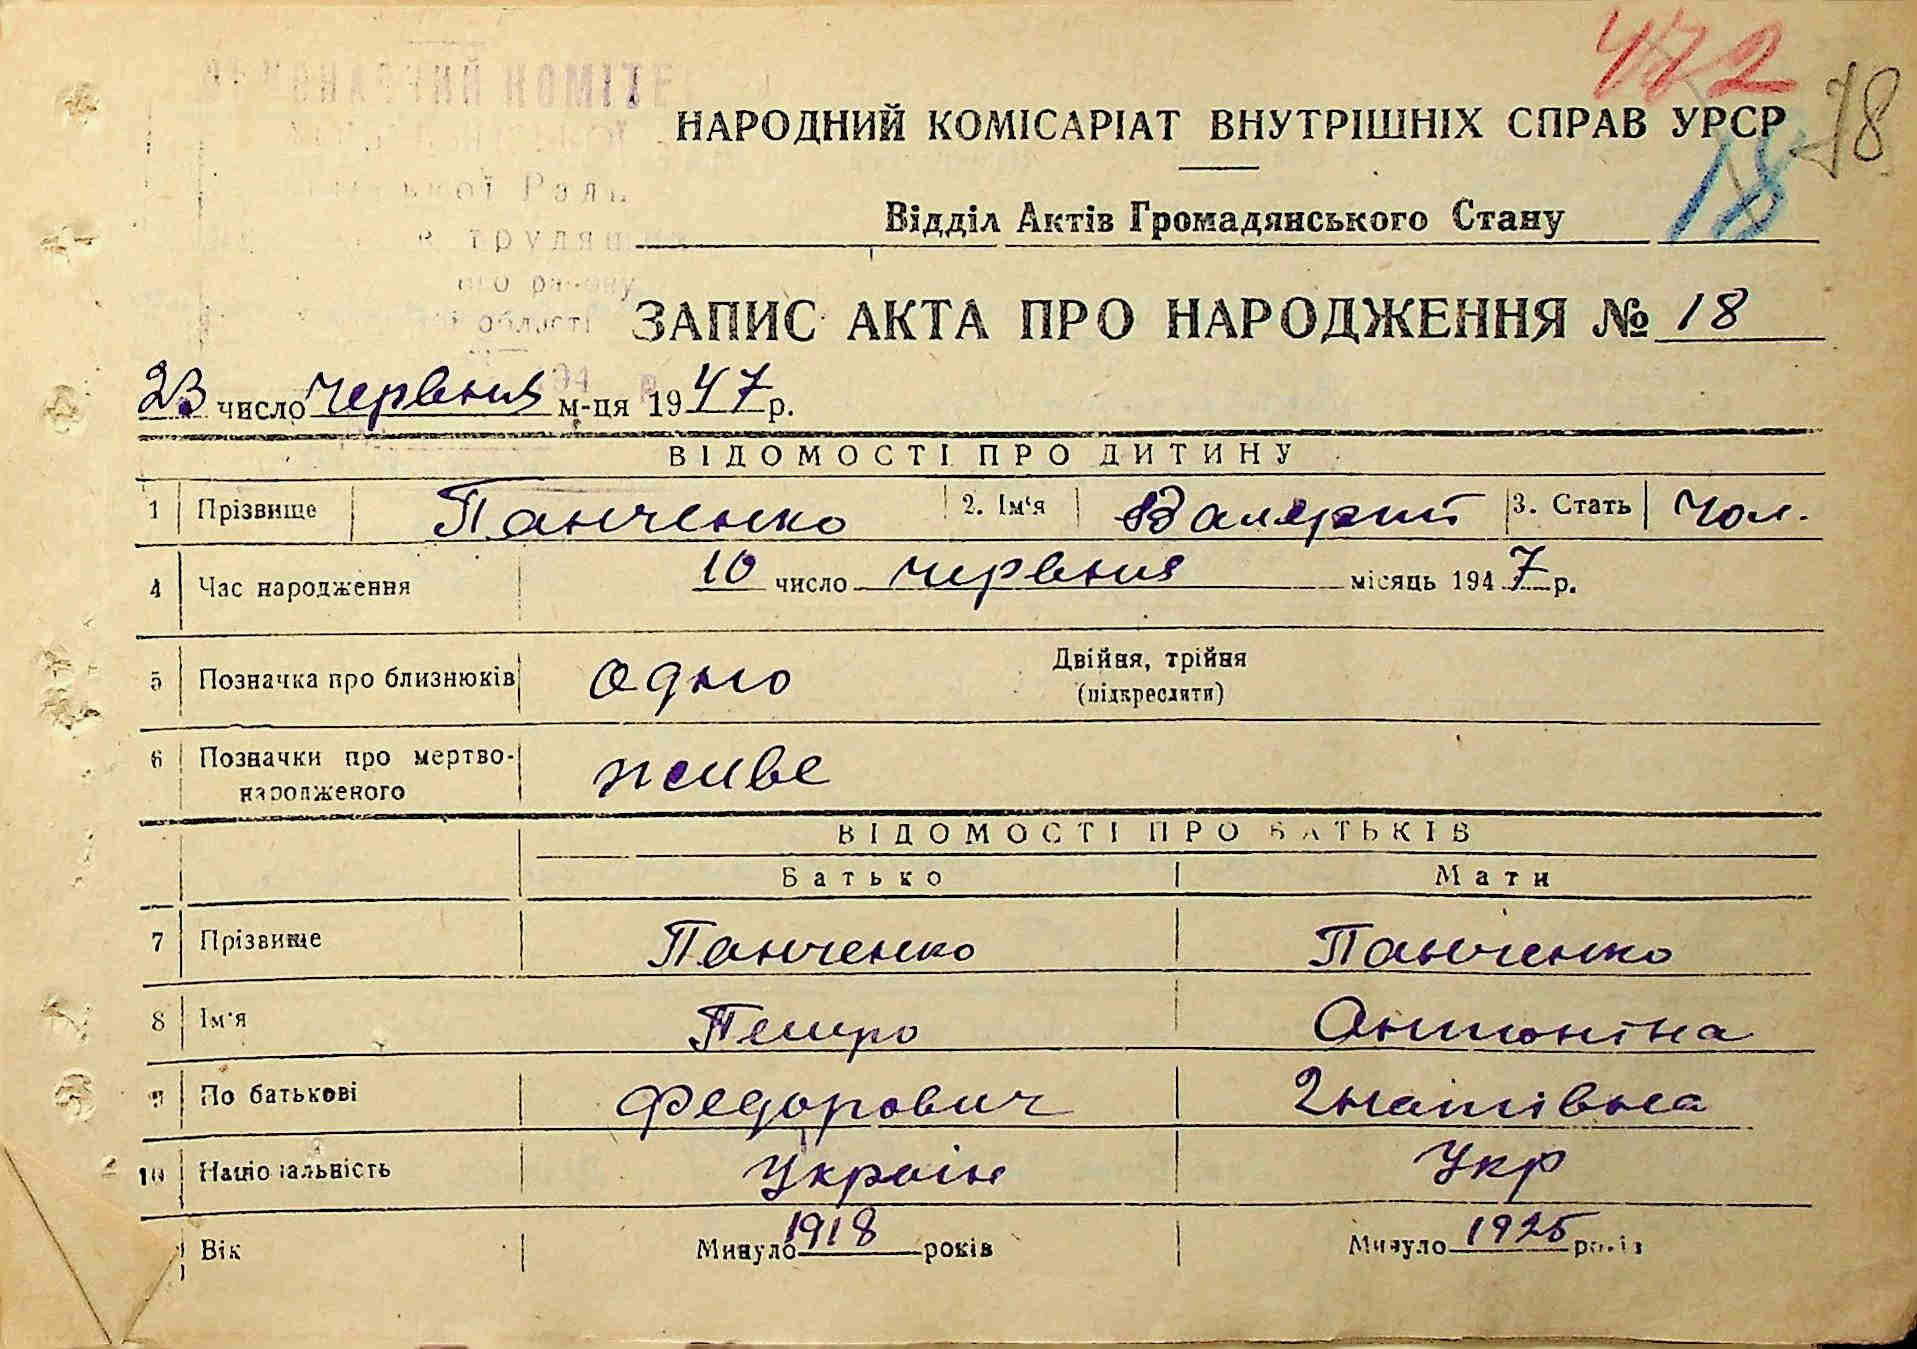 472
78
НАРОДНИЙ КОМІСАРІАТ ВНУТРІШНІХ СПРАВ УРСР
18
Відділ Актів Громадянського Стану
трудящих
району
області
ЗАПИС АКТА ПРО НАРОДЖЕННЯ № 18
23 число червня м-ця 1947 р.
ВІДОМОСТІ ПРО ДИТИНУ
1 Прізвище Панченко 2. Ім'я Валерий 3. Стать чол.
4 Час народження 10 число червня місяць 1947 р.
5 Позначка про близнюків одно Двійня, трійня
(підкреслити)
6 Позначки про мертво-
народженого живе
ВІДОМОСТІ ПРО БАТЬКІВ
Батько Мати
7 Прізвище Панченко Панченко
8 Ім'я Петро Антоніна
9 По батькові Федорович Гнатівна
10 Національність Україн Укр
Вік Минуло 1918 років Минуло 1925 років